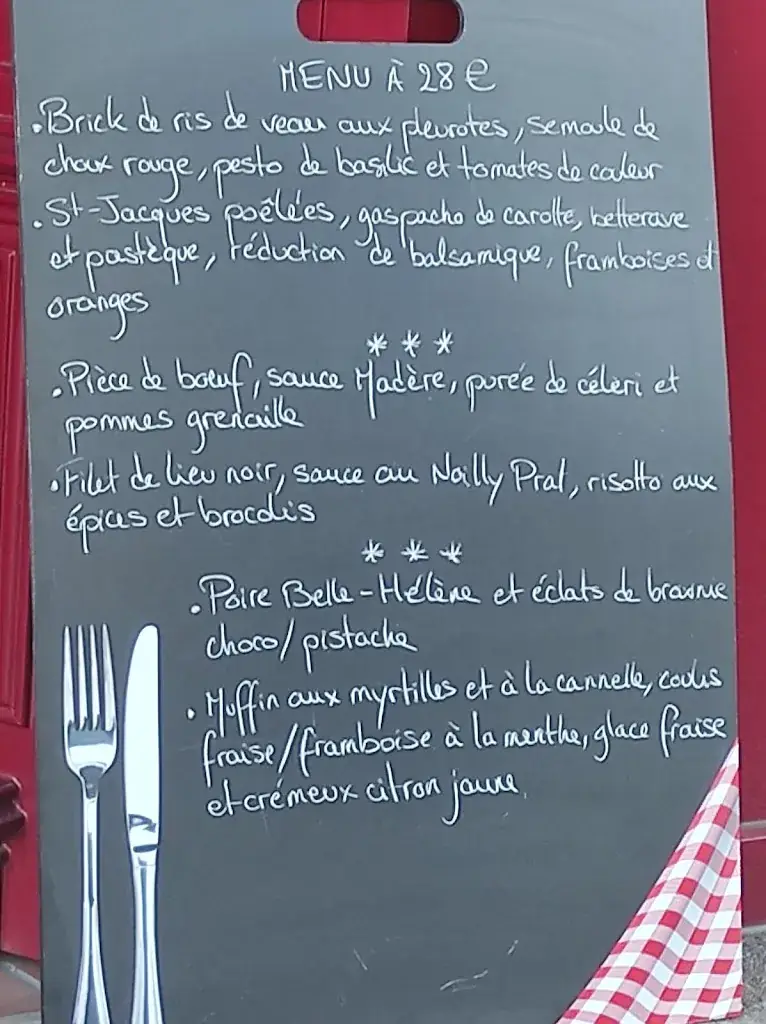 MENU À 28 €
• Brick de ris de veau aux pleurotes, semoule de
choux rouge, pesto de basilic et tomates de couleur
• St-Jacques poêlées, gaspacho de carotte, betterave
et pastèque, réduction de balsamique, framboises et
oranges
* * *
• Pièce de boeuf, sauce Madère, purée de céleri et
pommes grenaille
• Filet de lieu noir, sauce au Noilly Prat, risotto aux
épices et brocolis
* * *
• Poire Belle-Hélène et éclats de brownie
choco/pistache
• Muffin aux myrtilles et à la cannelle, coulis
fraise/framboise à la menthe, glace fraise
et crémeux citron jaune